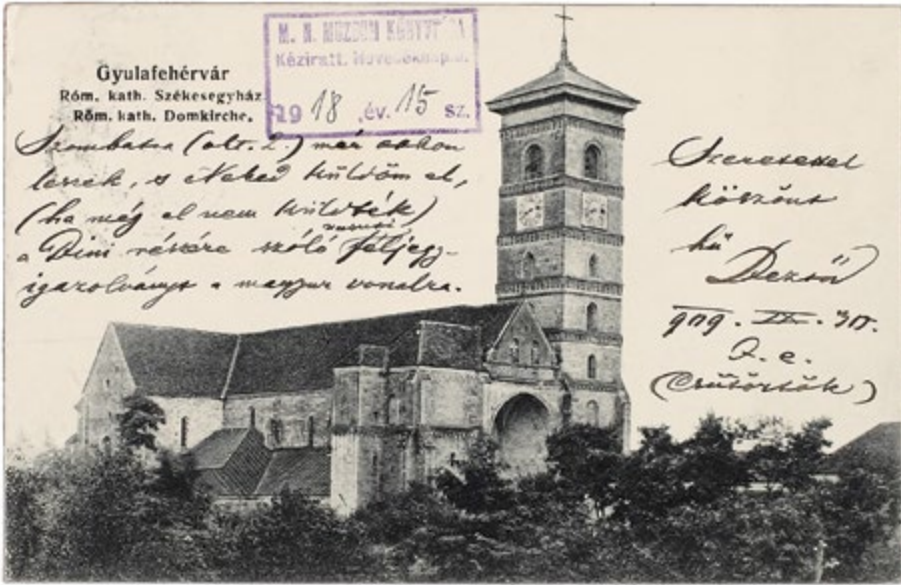 Gyulafehérvár
Róm. kath. Székesegyház.
Röm. kath. Domkirche.
M. N. MÚZEUM KÖNYVTÁRA
Kéziratt. Növedéknapló.
1918 .év. 15 sz.
Szombaton (okt. 2.) már otthon
leszek, s Neked küldöm el,
(ha még el nem küldték)
a Dini részére szóló vasuti féljegy-
igazolványt a magyar vonalra.
Szeretettel
köszönt
hű
Dezső
909. IX. 30.
D. e.
(Csütörtök)